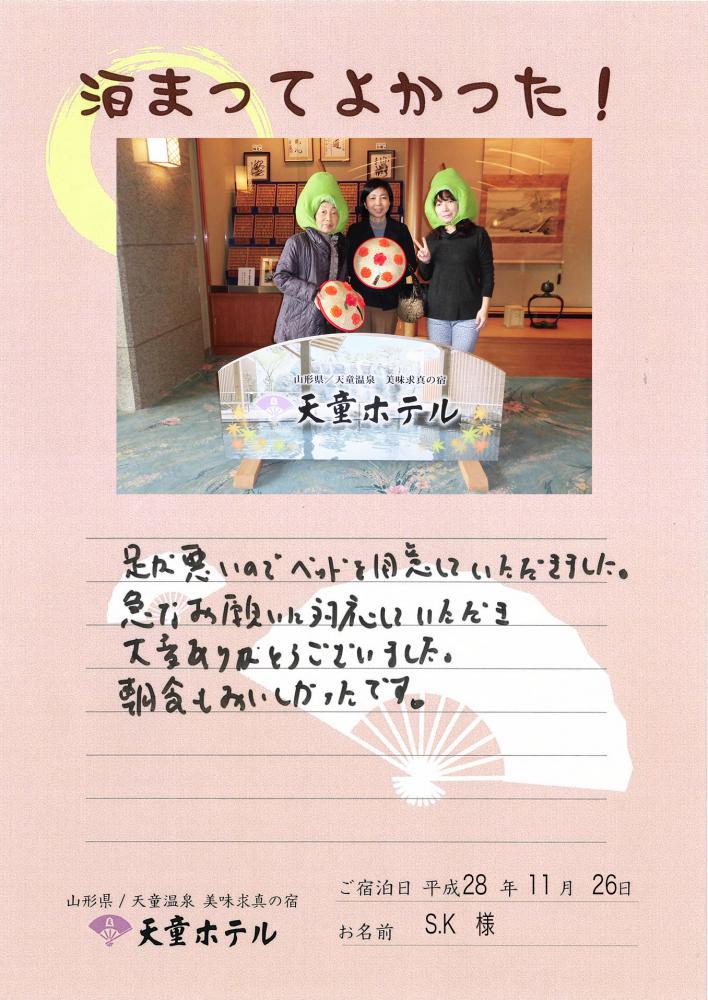 泊まってよかった！
山形県／天童温泉 美味求真の宿
天童ホテル
足が悪いのでベッドを用意していただきました。
急なお願いに対応していただき
大変ありがとうございました。
朝食もおいしかったです。
ご宿泊日 平成28年 11月 26日
お名前 S.K 様
山形県 / 天童温泉 美味求真の宿
天童ホテル